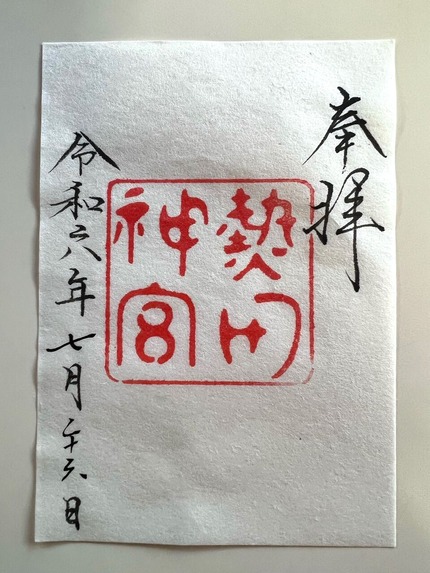 奉拝
熱田神宮
令和六年七月二十六日